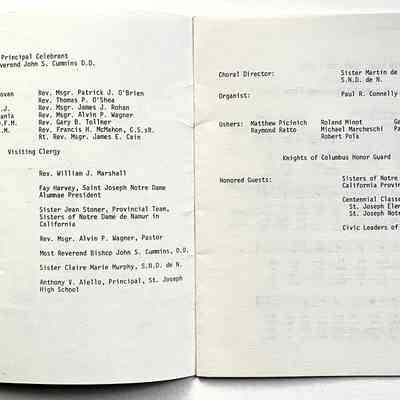 Principal Celebrant
everend John S. Cummins D.D.
ovan Rev. Msgr. Patrick J. O'Brien
Rev. Thomas P. O'Shea
.J. Rev. Msgr. James J. Rohan
ania Rev. Msgr. Alvin P. Wagner
.F.M. Rev. Gary B. Tollner
.M. Rev. Francis H. McMahon, C.S.sR.
Rt. Rev. Msgr. James E. Cain
Visiting Clergy
Rev. William J. Marshall
Fay Harvey, Saint Joseph Notre Dame
Alumnae President
Sister Jean Stoner, Provincial Team,
Sisters of Notre Dame de Namur in
California
Rev. Msgr. Alvin P. Wagner, Pastor
Most Reverend Bishop John S. Cummins, D.D.
Sister Claire Marie Murphy, S.N.D. de N.
Anthony V. Aiello, Principal, St. Joseph
High School
Choral Director: Sister Martin de
S.N.D. de N.
Organist: Paul R. Connelly
Ushers: Matthew Picinich Roland Minot Ge
Raymond Ratto Michael Marcheschi Pa
Robert Pola
Knights of Columbus Honor Guard
Honored Guests: Sisters of Notre
California Provin
Centennial Classe
St. Joseph Elem
St. Joseph Notr
Civic Leaders of